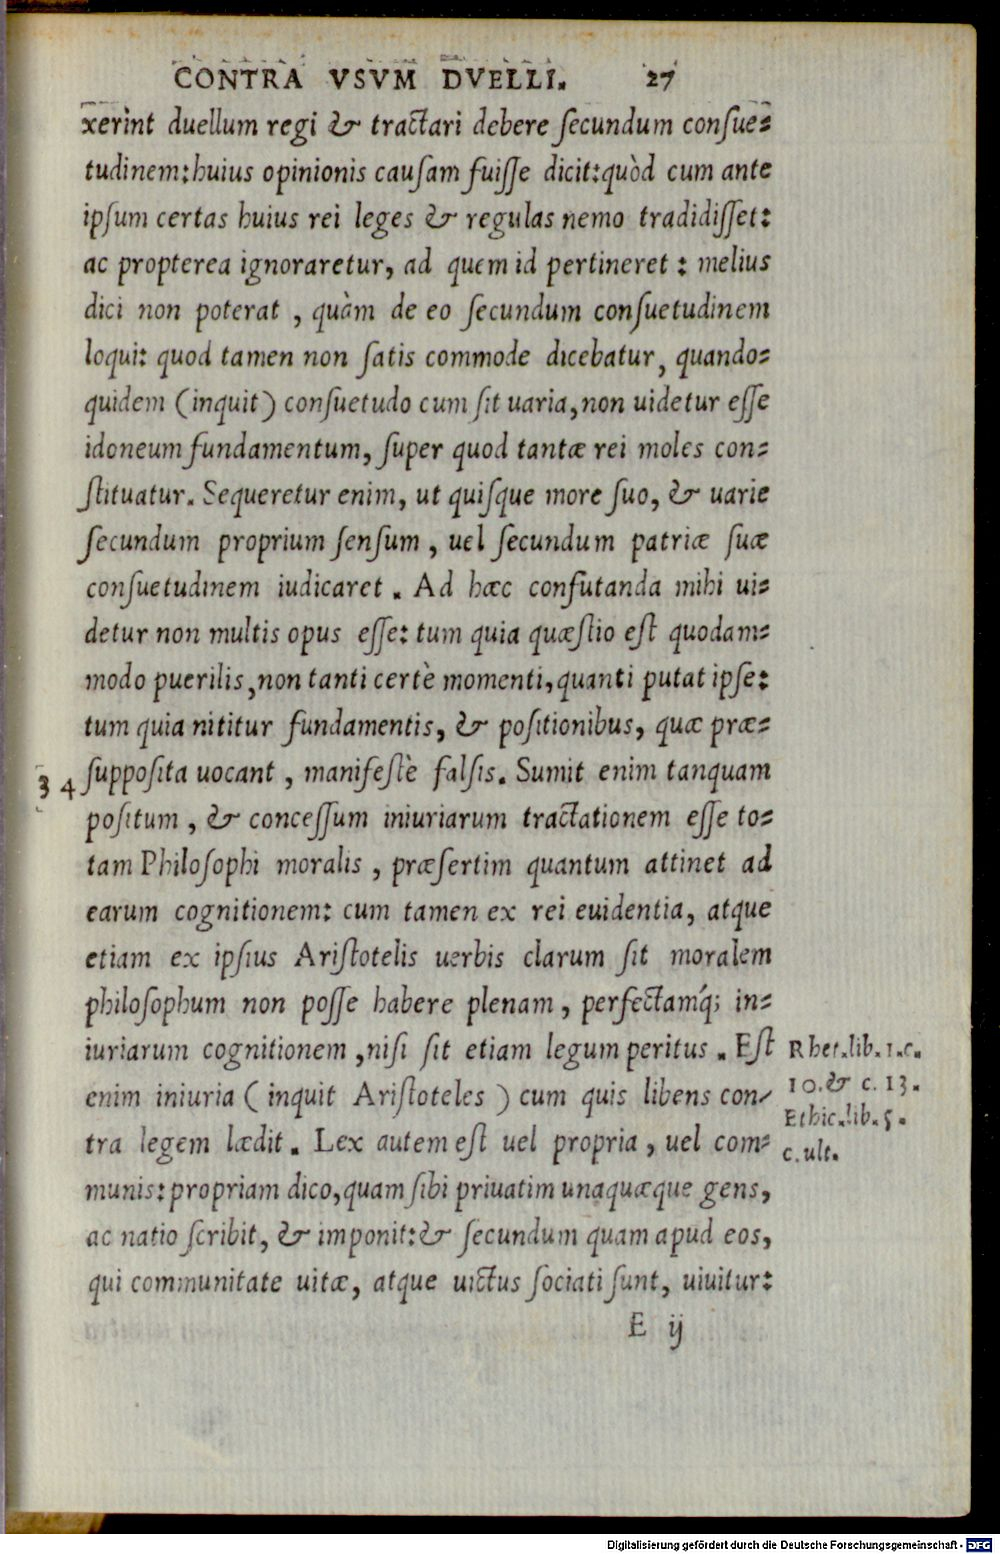 CONTRA VSVM DVELLI. 27
xerint duellum regi & tractari debere ſecundum conſue=
tudinem:huius opinionis cauſam fuiſſe dicit:quòd cum ante
ipſum certas huius rei leges & regulas nemo tradidiſſet:
ac propterea ignoraretur, ad quem id pertineret : melius
dici non poterat , quàm de eo ſecundum conſuetudinem
loqui: quod tamen non ſatis commode dicebatur, quando=
quidem (inquit) conſuetudo cum ſit uaria, non uidetur eſſe
idoneum fundamentum, ſuper quod tantæ rei moles con=
ſtituatur. Sequeretur enim, ut quiſque more ſuo, & uarie
ſecundum proprium ſenſum , uel ſecundum patriæ ſuæ
conſuetudinem iudicaret . Ad hæc confutanda mihi ui=
detur non multis opus eſſe: tum quia quæſtio eſt quodam=
modo puerilis, non tanti certè momenti, quanti putat ipſe:
tum quia nititur fundamentis, & poſitionibus, quæ præ=
34 ſuppoſita uocant , manifeſtè falſis. Sumit enim tanquam
poſitum , & conceſſum iniuriarum tractationem eſſe to=
tam Philoſophi moralis , præſertim quantum attinet ad
earum cognitionem: cum tamen ex rei euidentia, atque
etiam ex ipſius Ariſtotelis uerbis clarum ſit moralem
philoſophum non poſſe habere plenam , perfectamq́; in=
iuriarum cognitionem ,niſi ſit etiam legum peritus . Eſt
enim iniuria ( inquit Ariſtoteles ) cum quis libens con-
tra legem lædit . Lex autem eſt uel propria , uel com=
munis: propriam dico, quam ſibi priuatim unaquæque gens,
ac natio ſcribit, & imponit:& ſecundum quam apud eos,
qui communitate uitæ, atque uictus ſociati ſunt, uiuitur:
Rhet.lib.1.c.
10.& c. 13.
Ethic.lib.5.
c.ult.
E ij
Digitalisierung gefördert durch die Deutsche Forschungsgemeinschaft - DFG